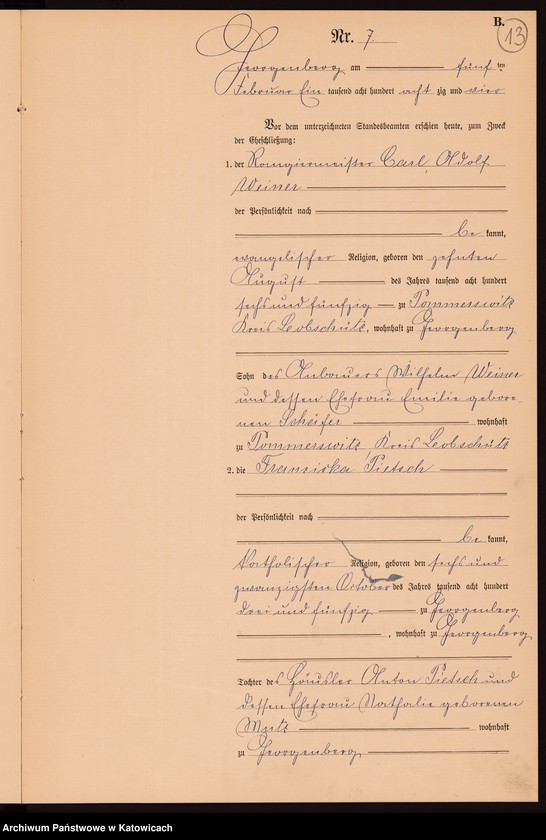 B.
13
Nr. 7
Georgenberg am fünften
Februar Ein tausend acht hundert acht zig und vier
Vor dem unterzeichneten Standesbeamten erschien heute, zum Zweck
der Eheschließung:
1. der Rangiermeister Carl, Adolf
Weiner
der Persönlichkeit nach
be kannt,
evangelischer Religion, geboren den zehnten
August des Jahres tausend acht hundert
sechs und fünfzig zu Pommerswitz
Kreis Leobschütz, wohnhaft zu Georgenberg
Sohn des Anbauers Wilhelm Weiner
und dessen Ehefrau Emilie gebore-
nen Schäfer wohnhaft
zu Pommerswitz, Kreis Leobschütz
2. die Franziska Pietsch
der Persönlichkeit nach
be kannt,
katholischer Religion, geboren den sechs und
zwanzigsten October des Jahres tausend acht hundert
drei und fünfzig zu Georgenberg
, wohnhaft zu Georgenberg
Tochter des Häusler Anton Pietsch und
dessen Ehefrau Nathalie geborenen
zu Georgenberg wohnhaft
Archiwum Państwowe w Katowicach